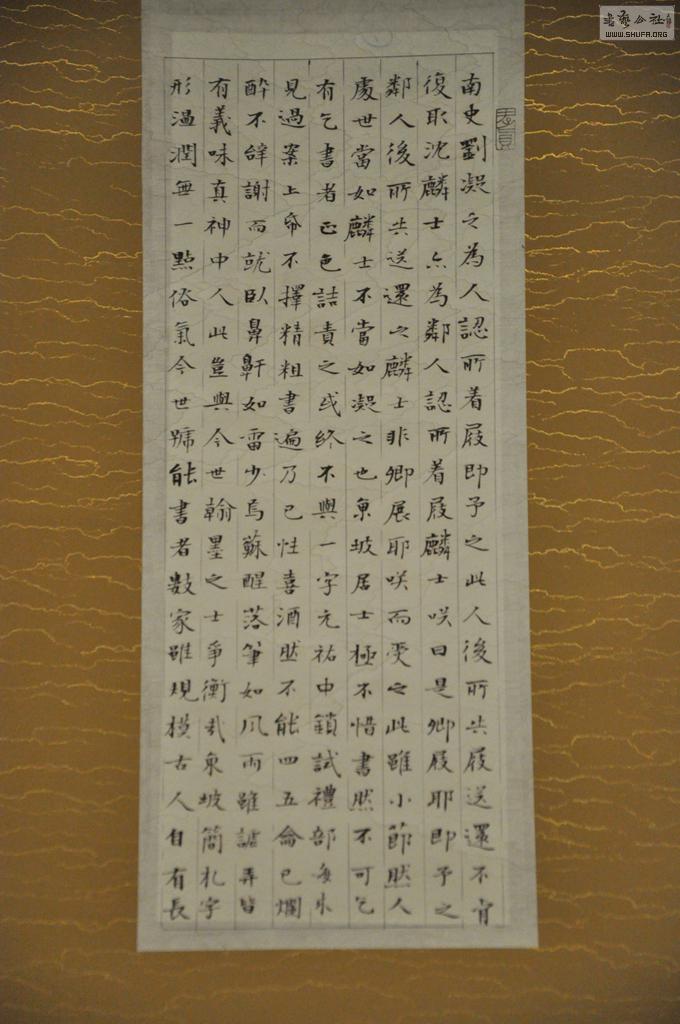 南史劉凝之為人認所着屐即予之此人後所失屐送還不肯
復取沈麟士亦為鄰人認所着屐麟士咲曰是卿屐耶即予之
鄰人後所失送還之麟士非卿屐耶咲而受之此雖小節然人
處世當如麟士不當如凝之也東坡居士極不惜書然不可乞
有乞書者正色詰責之或終不與一字元祐中鎖試禮部每來
見過案上帋不擇精粗書遍乃已性喜酒然不能四五龠已爛
醉不辭謝而就臥鼻鼾如雷少焉蘇醒落筆如風雨雖謔弄皆
有義味真神中人此豈與今世翰墨之士爭衡哉東坡簡札字
形溫潤無一點俗氣今世號能書者數家雖規橅古人自有長
WWW.SHUFA.ORG